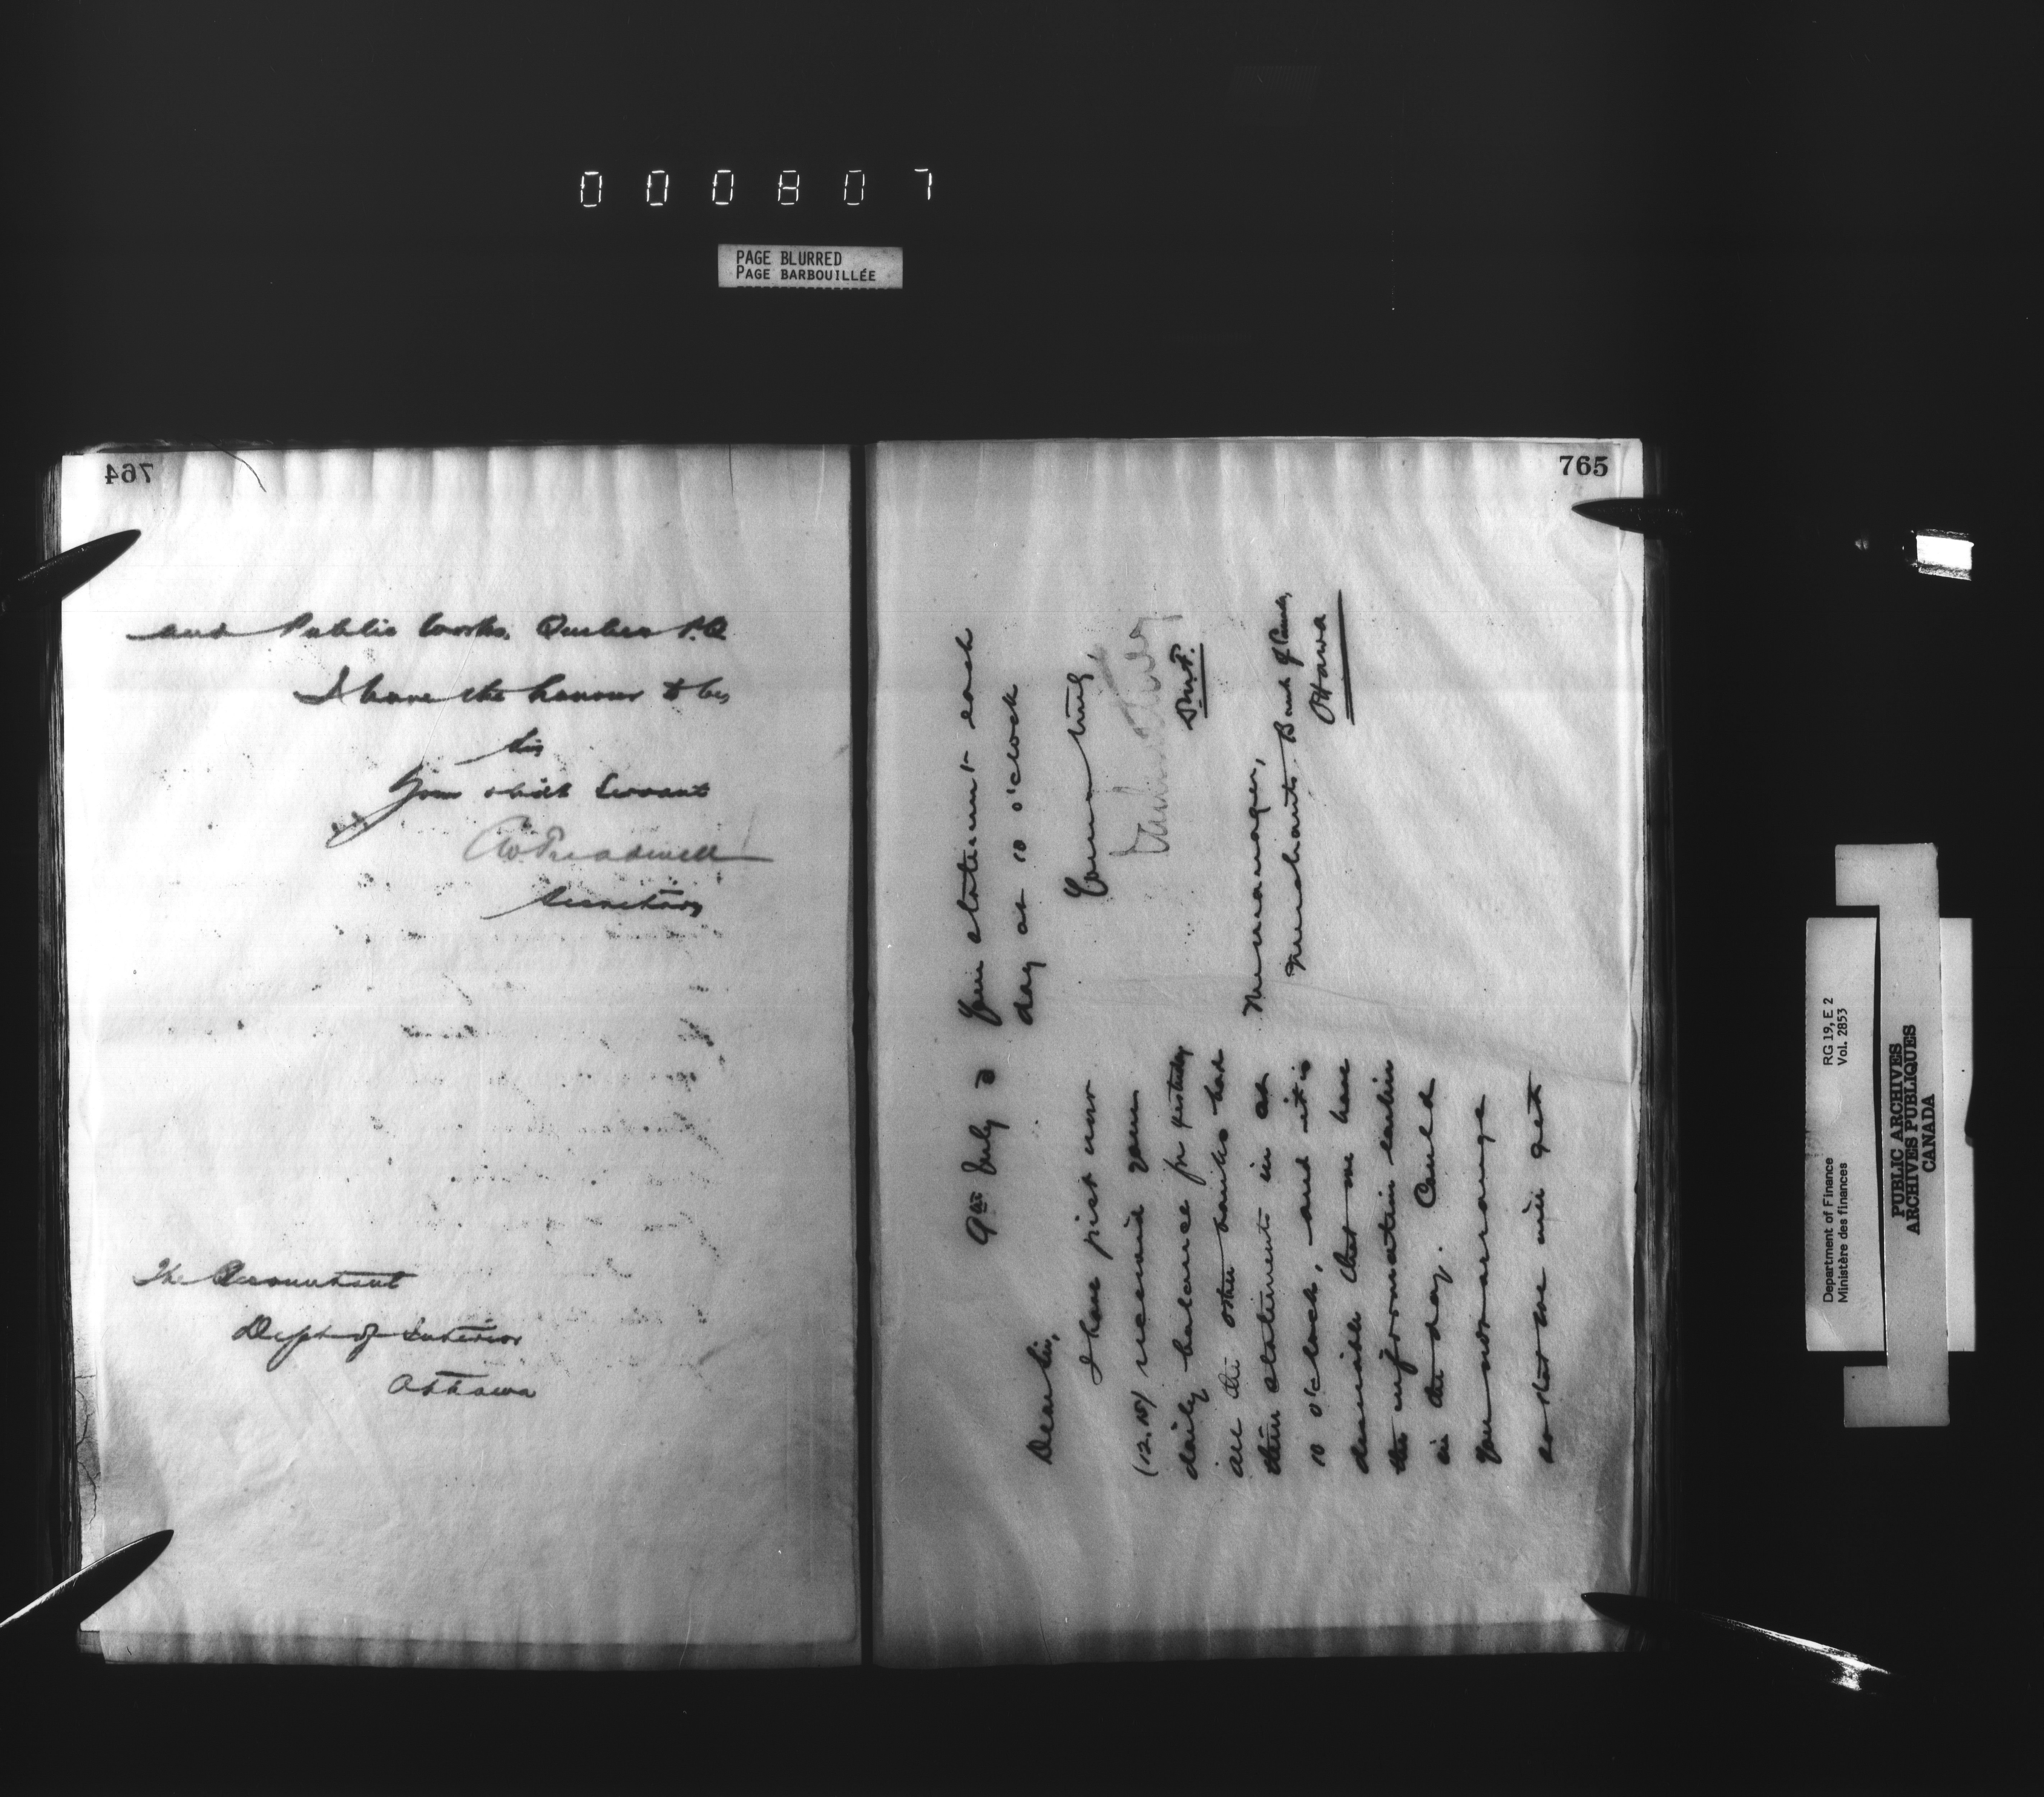 000807
PAGE BLURRED
PAGE BARBOUILLÉE
764
and Public Works, Quebec P.Q
I have the honour to be,
Sir
Your obdt Servant
Secretary
The Accountant
Dept of Interior
Ottawa
765
9th July
Dear Sir,
I have just now
(12.15) received your
daily balance for yesterday
all the other banks had
their statements in at
10 o'clock, and it is
desirable that we have
the information earlier
in the day. Could
you not arrange
so that we will get
your statement each
day at 10 o'clock
Yours truly
The Manager,
Merchants Bank of Canada,
Ottawa
Department of Finance
Ministère des finances
RG 19, E 2
Vol. 2853
PUBLIC ARCHIVES
ARCHIVES PUBLIQUES
CANADA